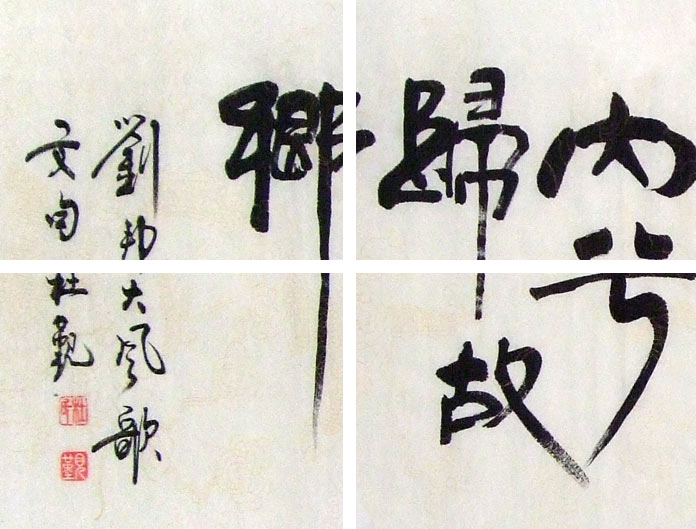 内兮
歸故
鄉
劉邦大風歌
文句杜觀